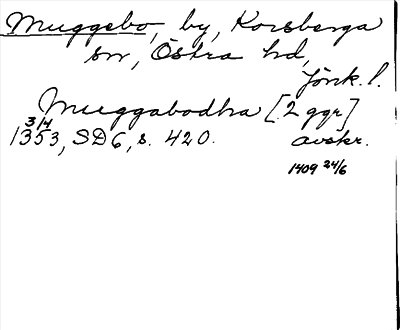 Muggebo, by, Korsberga
sn, Östra hd,
Jönk. l.
Muggabodha [2 ggr]
3/4
1353, SD6, s. 420. avskr.
1409 24/6